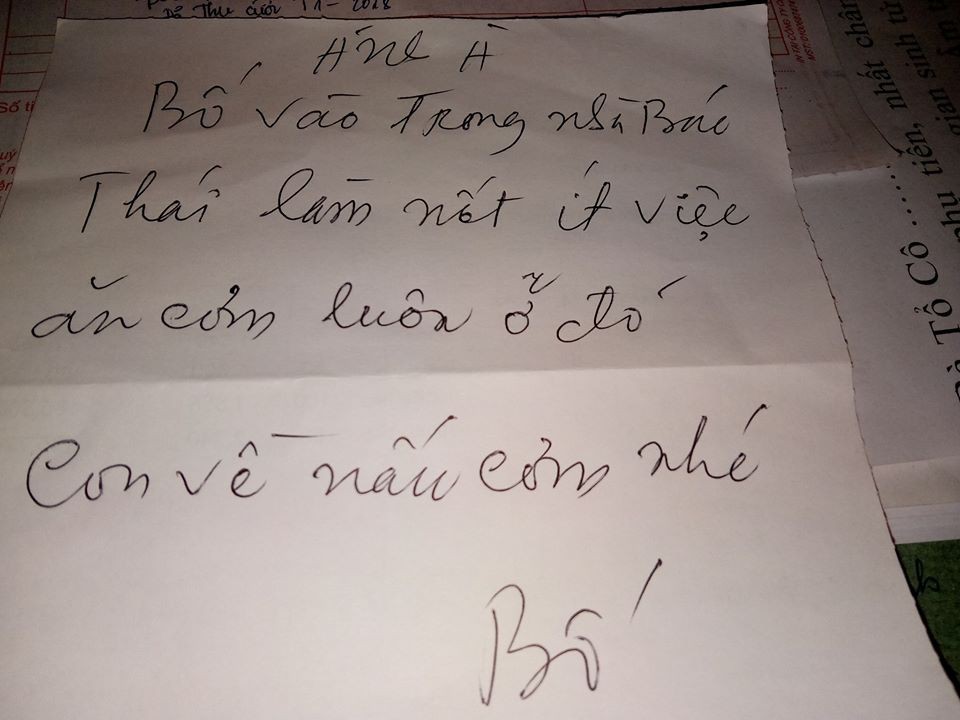 Dì Thu cưới 11-2018
À
Bố vào Trong nhà Bác
Thái làm nốt ít việc
ăn cơm luôn ở đó
Con về nấu cơm nhé
Bố
Số ti
Tổ Cô ......
phụ tiên, nhất chân
gian sinh từ